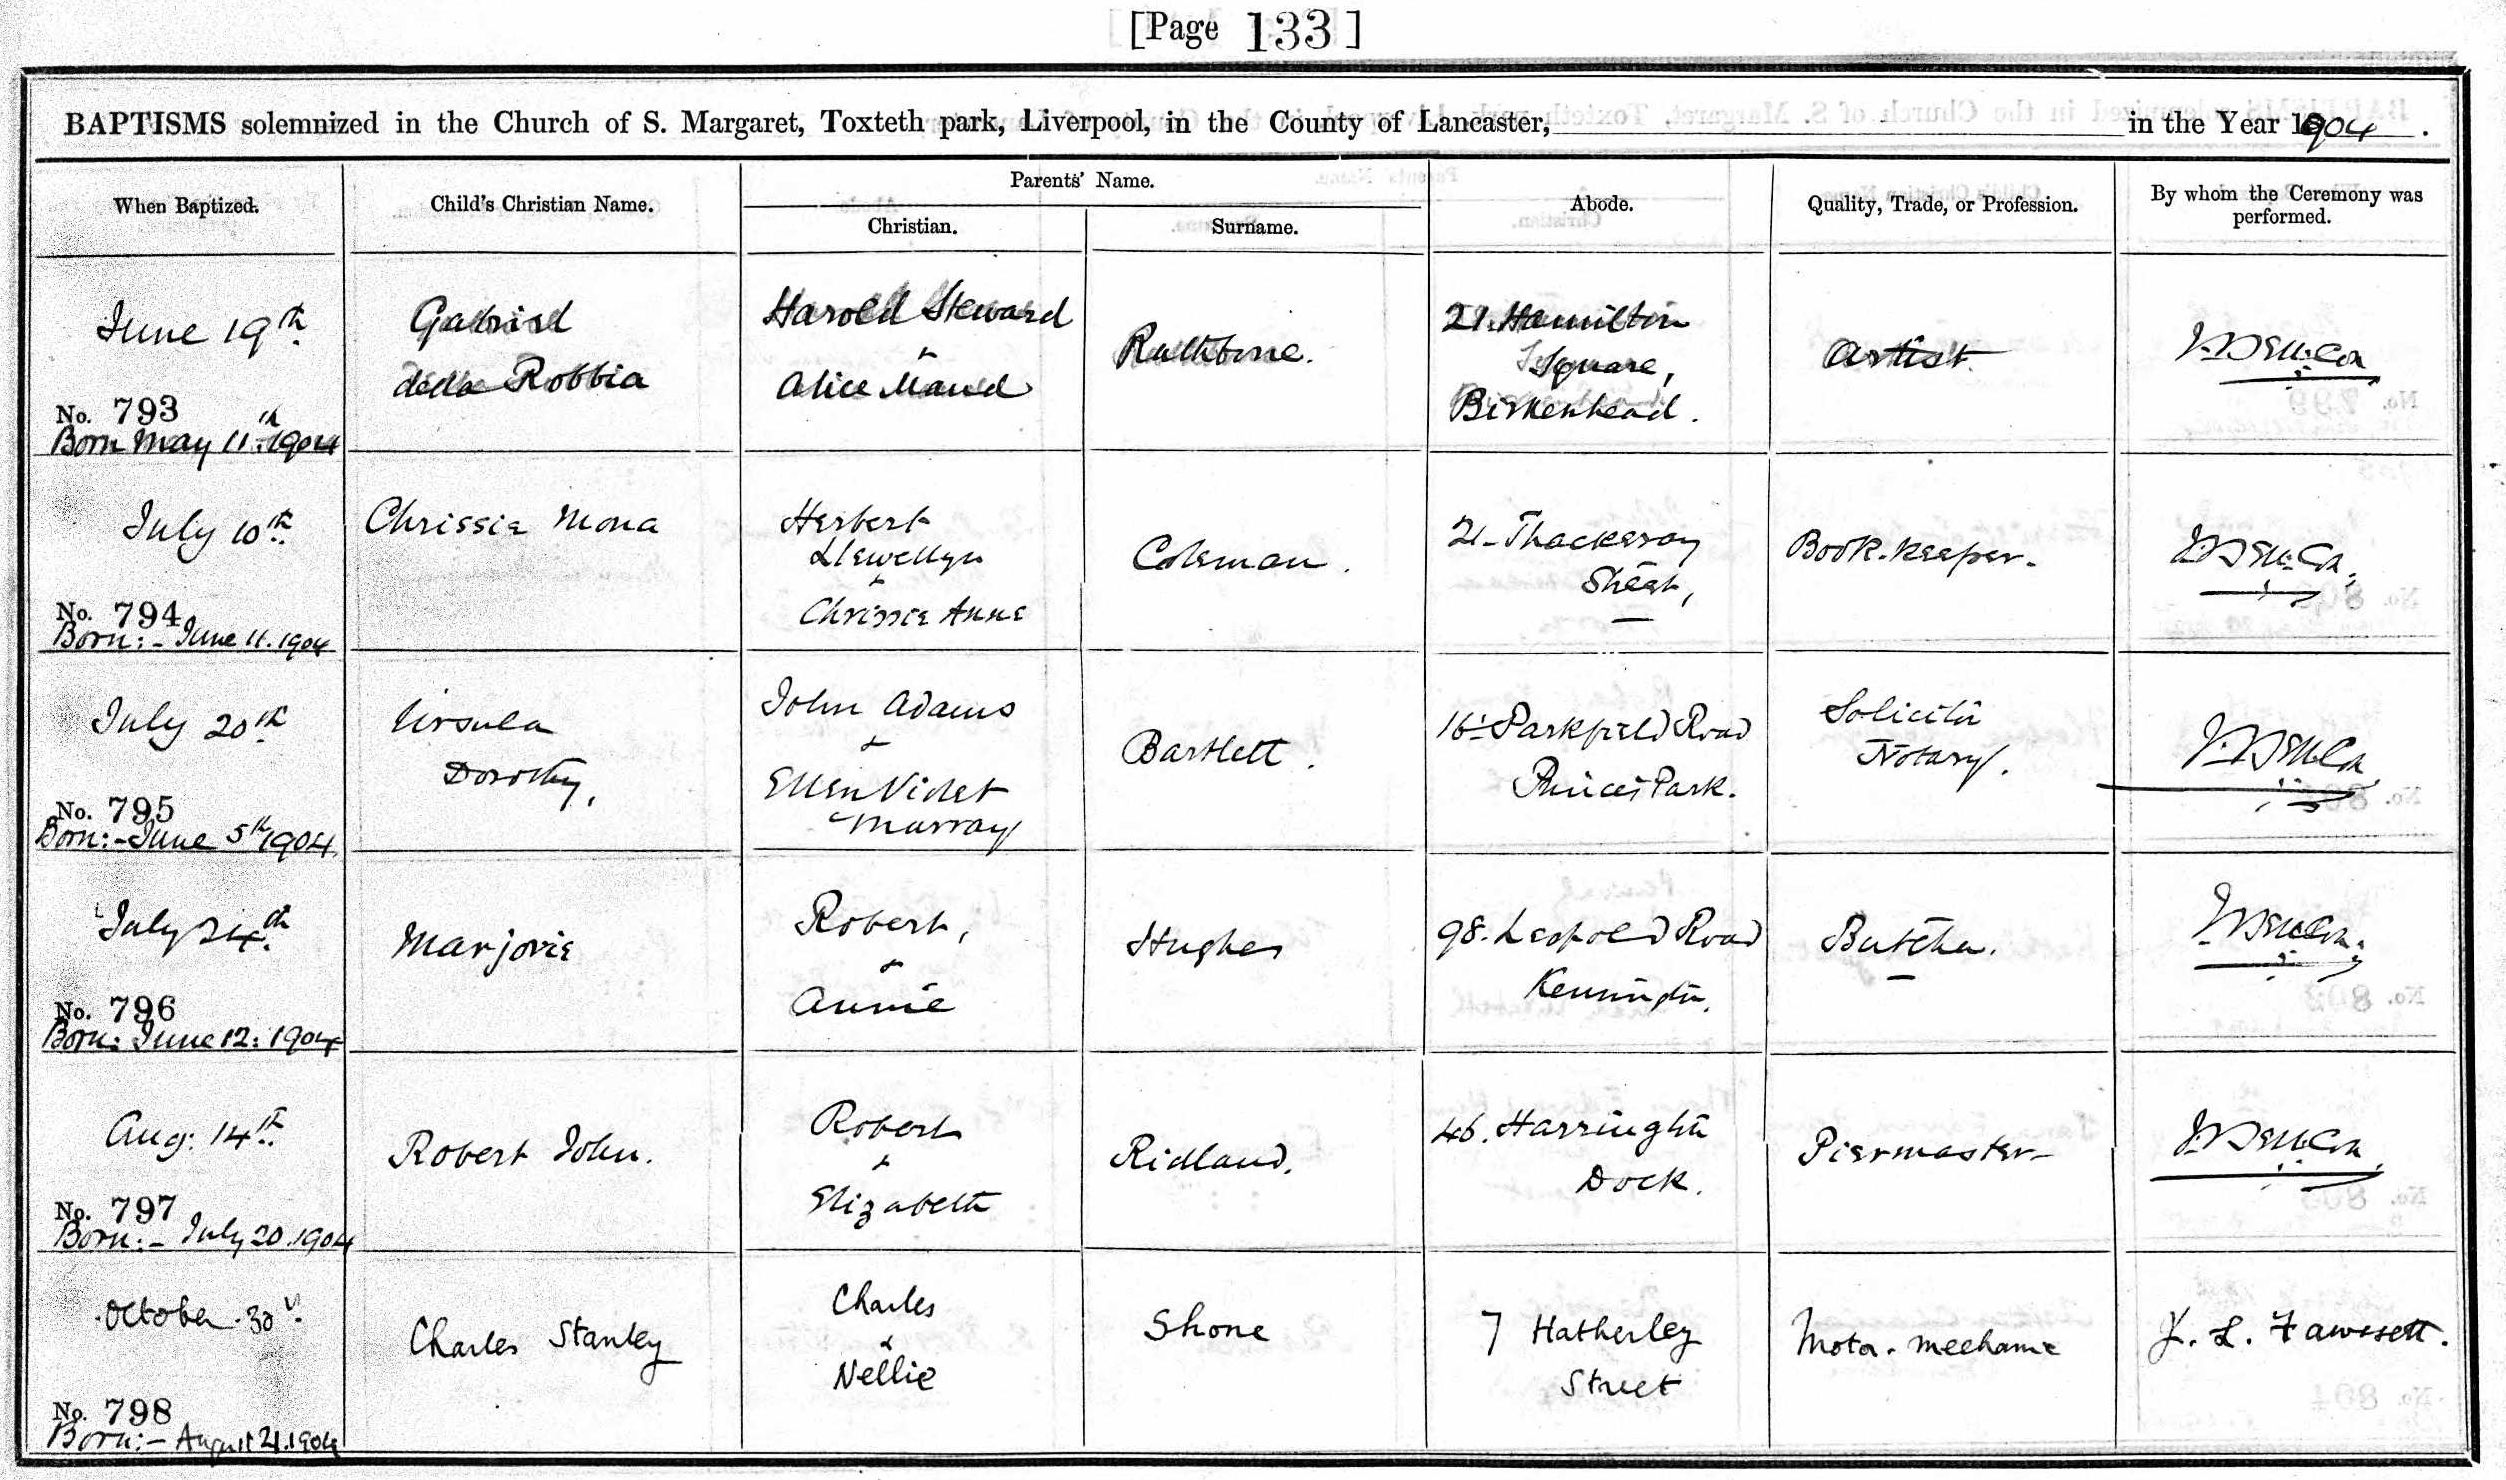 [Page 133]
BAPTISMS solemnized in the Church of S. Margaret, Toxteth park, Liverpool, in the County of Lancaster, in the Year 1904.
When Baptized.
Child's Christian Name.
Parents' Name.
Christian.
Surname.
Abode.
Quality, Trade, or Profession.
By whom the Ceremony was
performed.
June 19th
No. 793
Born May 11th 1904
Gabriel
della Robbia
Harold Steward
+
Alice Maud
Rathbone.
21. Hamilton
Square,
Birkenhead.
Artist.
July 10th
No. 794
Born:- June 11. 1904
Chrissie Mona
Herbert
Llewellyn
+
Chrissie Anne
Coleman.
21- Thackeray
Street,
Book-keeper-
July 20th
No. 795
Born:- June 5th 1904.
Ursula
Dorothy,
John Adams
+
Ellen Violet
Murray
Bartlett.
16 Parkfield Road
Princes Park.
Solicitor
Notary.
July 24th
No. 796
Born: June 12: 1904
Marjorie
Robert,
+
Annie
Hughes
98. Leopold Road
Kensington.
Butcher.
Aug: 14th
No. 797
Born:- July 20. 1904
Robert John.
Robert
+
Elizabeth
Ridland.
46. Harrington
Dock.
Piermaster-
October 30
No. 798
Born:- August 21. 1904
Charles Stanley
Charles
&
Nellie
Shone
7 Hatherley
Street
Motor-mechanic
J. L. Fawssett.